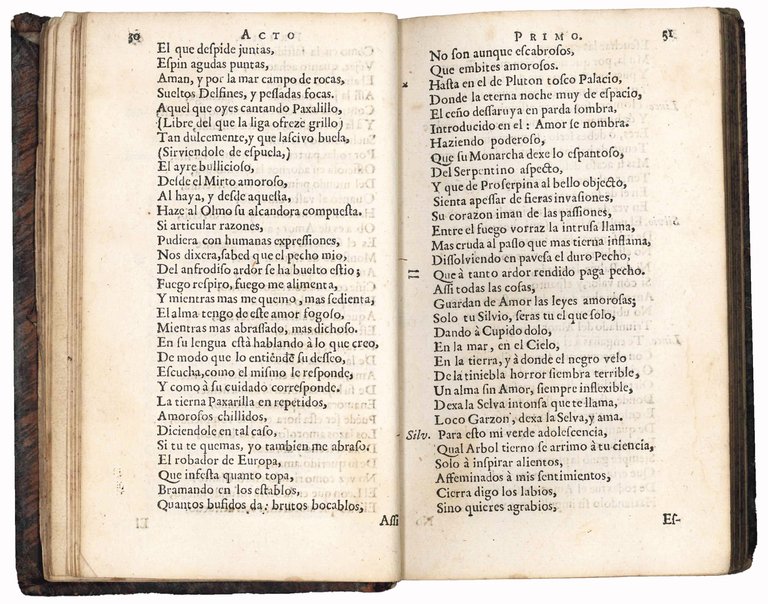 30 ACTO
El que deſpide juntas,
Eſpin agudas puntas,
Aman, y por la mar campo de rocas,
Sueltos Delfines, y peſſadas focas.
Aquel que oyes cantando Paxalillo,
(Libre del que la liga ofreze grillo)
Tan dulcemente, y que laſcivo buela,
(Sirviendole de eſpuela,)
El ayre bullicioſo,
Deſde el Mirto amoroſo,
Al haya, y deſde aqueſta,
Haze al Olmo ſu alcandora compueſta.
Si articular razones,
Pudiera con humanas expreſſiones,
Nos dixera, ſabed que el pecho mio,
Del anfrodiſo ardor ſe ha buelto eſtio;
Fuego reſpiro, fuego me alimenta,
Y mientras mas me quemo, mas ſedienta,
El alma tengo de eſte amor fogoſo,
Mientras mas abraſſado, mas dichoſo.
En ſu lengua eſtà hablando à lo que creo,
De modo que lo entiẽde ſu deſſeo,
Eſcucha, como el miſmo le reſponde,
Y como à ſu cuidado correſponde.
La tierna Paxarilla en repetidos,
Amoroſos chillidos,
Diciendole en tal caſo,
Si tu te quemas, yo tambien me abraſo.
El robador de Europa,
Que infeſta quanto topa,
Bramando en los eſtablos,
Quantos bufidos da: brutos bocablos,
Aſſi
PRIMO. 51
No ſon aunque eſcabroſos,
Que embites amoroſos.
Haſta en el de Pluton toſco Palacio,
Donde la eterna noche muy de eſpacio,
El ceño deſſaruya en parda ſombra,
Introducido en el: Amor ſe nombra.
Haziendo poderoſo,
Que ſu Monarcha dexe lo eſpantoſo,
Del Serpentino aſpecto,
Y que de Proſerpina al bello objecto,
Sienta apeſſar de fieras invaſiones,
Su corazon iman de las paſſiones,
Entre el fuego vorraz la intruſa llama,
Mas cruda al paſſo que mas tierna inflama,
Diſſolviendo en paveſa el duro Pecho,
Que à tanto ardor rendido paga pecho.
Aſſi todas las coſas,
Guardan de Amor las leyes amoroſas;
Solo tu Silvio, ſeras tu el que ſolo,
Dando à Cupido dolo,
En la mar, en el Cielo,
En la tierra, y à donde el negro velo
De la tiniebla horror ſiembra terrible,
Un alma ſin Amor, ſiempre inflexible,
Dexa la Selva intonſa que te llama,
Loco Garzon, dexa la Selva, y ama.
Silv. Para eſto mi verde adoleſcencia,
Qual Arbol tierno ſe arrimo à tu ciencia,
Solo à inſpirar alientos,
Affeminados à mis ſentimientos,
Cierra digo los labios,
Sino quieres agrabios,
Eſ-